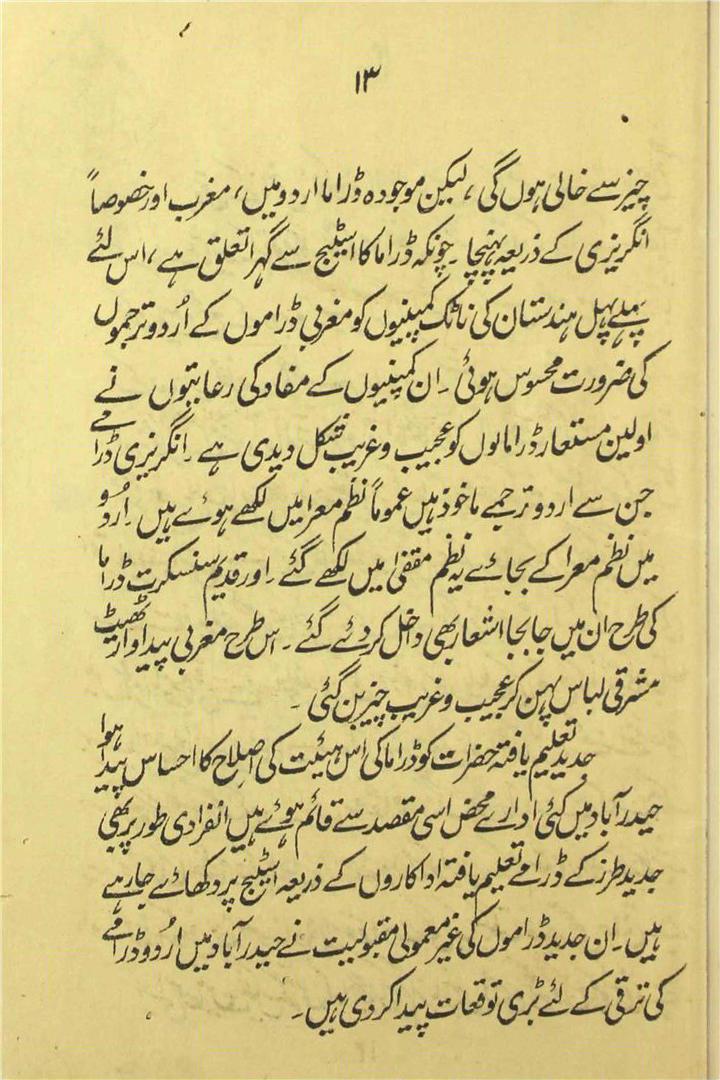 ۱۳
چیز سے خالی ہوں گی، لیکن موجودہ ڈراما اردو میں، مغرب اور خصوصاً
انگریزی کے ذریعہ پہنچا۔ چونکہ ڈراما کا اسٹیج سے گہرا تعلق ہے، اس لئے
پہلے پہل ہندستان کی ناٹک کمپنیوں کو مغربی ڈراموں کے اُردو ترجموں
کی ضرورت محسوس ہوئی۔ ان کمپنیوں کے مفاد کی رعایتوں نے
اولین مستعار ڈراماوں کو عجیب و غریب شکل دیدی ہے۔ انگریزی ڈرامے
جن سے اردو ترجمے ماخوذ ہیں عموماً نظم معرا میں لکھے ہوئے ہیں۔ اردو
میں نظم معرا کے بجائے یہ نظم مقفیٰ میں لکھے گئے۔ اور قدیم سنسکرت ڈراما
کی طرح ان میں جابجا اشعار بھی داخل کردئے گئے۔ اس طرح مغربی پیداوار ٹھیٹ
مشرقی لباس پہن کر عجیب و غریب چیز بن گئی۔
جدید تعلیم یافتہ حضرات کو ڈراما کی اس ہیئت کی اصلاح کا احساس پیدا ہوا
حیدرآباد میں کئی ادارے محض اسی مقصد سے قائم ہوئے ہیں انفرادی طور پر بھی
جدید طرز کے ڈرامے تعلیم یافتہ اداکاروں کے ذریعہ اسٹیج پر دکھائے جارہے
ہیں۔ ان جدید ڈراموں کی غیر معمولی مقبولیت نے حیدرآباد میں اُردو ڈرامے
کی ترقی کے لئے بڑی توقعات پیدا کردی ہیں۔